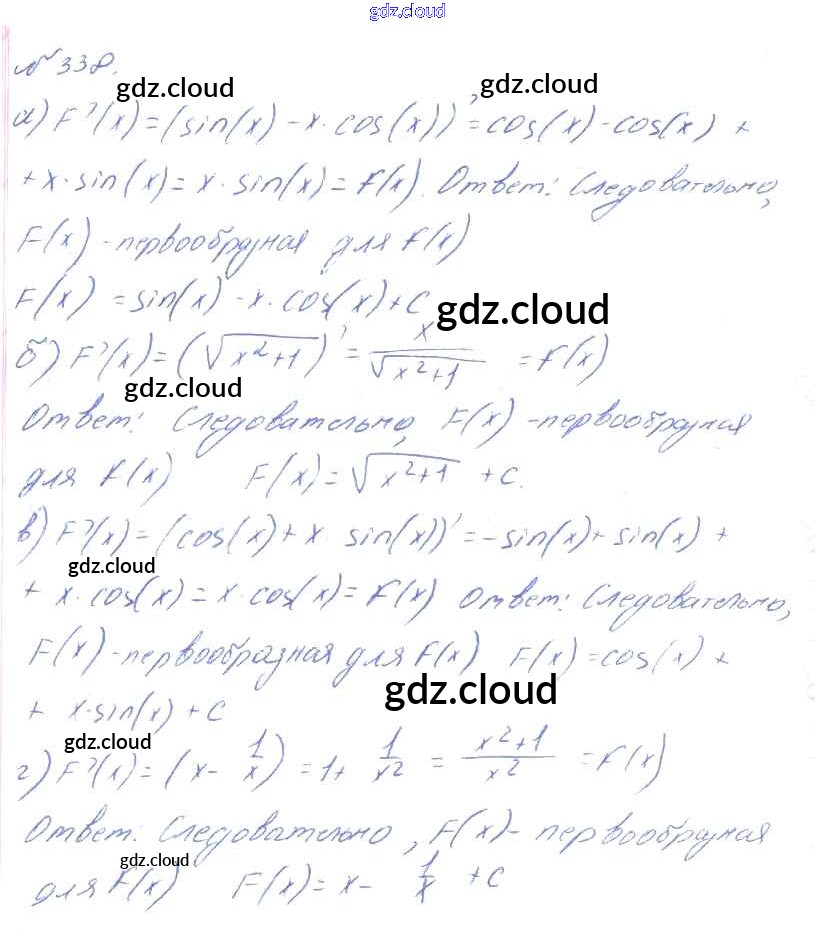 gdz.cloud
№ 338.
gdz.cloud gdz.cloud
а) F'(x) = (sin(x) - x · cos(x))' = cos(x) - cos(x) +
+ x · sin(x) = x · sin(x) = f(x). Ответ: Следовательно,
F(x) - первообразная для f(x)
F(x) = sin(x) - x · cos(x) + C
gdz.cloud
б) F'(x) = (√(x²+1))' = x/√(x²+1) = f(x)
gdz.cloud
Ответ: Следовательно, F(x) - первообразная
для f(x) F(x) = √(x²+1) + C.
в) F'(x) = (cos(x) + x · sin(x))' = -sin(x) + sin(x) +
gdz.cloud
+ x · cos(x) = x · cos(x) = f(x) Ответ: Следовательно,
F(x) - первообразная для f(x) F(x) = cos(x) +
gdz.cloud
+ x · sin(x) + C
gdz.cloud
г) F'(x) = (x - 1/x) = 1 + 1/x² = (x²+1)/x² = f(x)
Ответ: Следовательно, F(x) - первообразная
gdz.cloud
для f(x) F(x) = x - 1/x + C